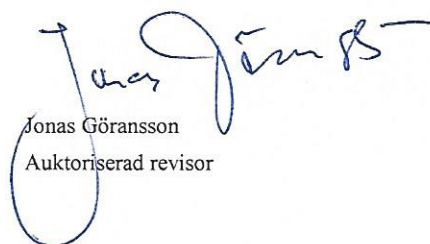 Jonas Göransson
Jonas Göransson
Auktoriserad revisor